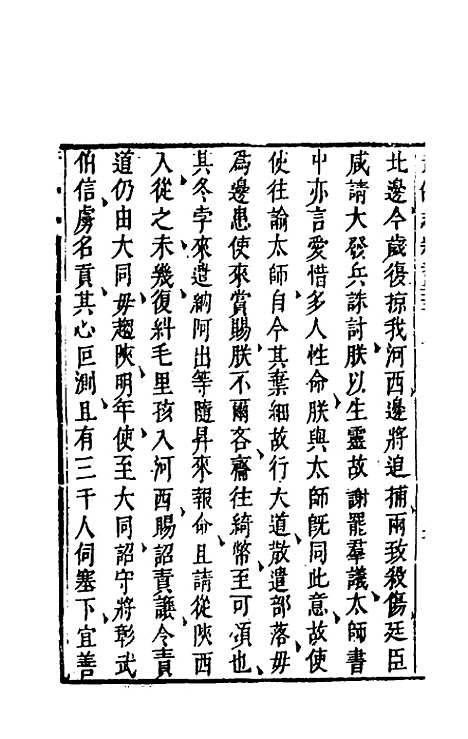 北邊今歲復掠我河西邊將追捕兩致殺傷廷臣
咸請大發兵誅討朕以生靈故謝罷羣議太師書
中亦言愛惜多人性命朕與太師旣同此意故使
使往諭太師自今其棄細故行大道敢遣部落毋
爲邊患使來賞賜朕不爾吝齎往綺幣至可領也
其冬孛來遣納阿出等隨昇來報命且請從陝西
入從之未幾復糾毛里孩入河西賜詔責讓令貢
道仍由大同毋趨陝明年使至大同詔守將彰武
伯信虜名貢其心叵測且有三千人伺塞下宜善